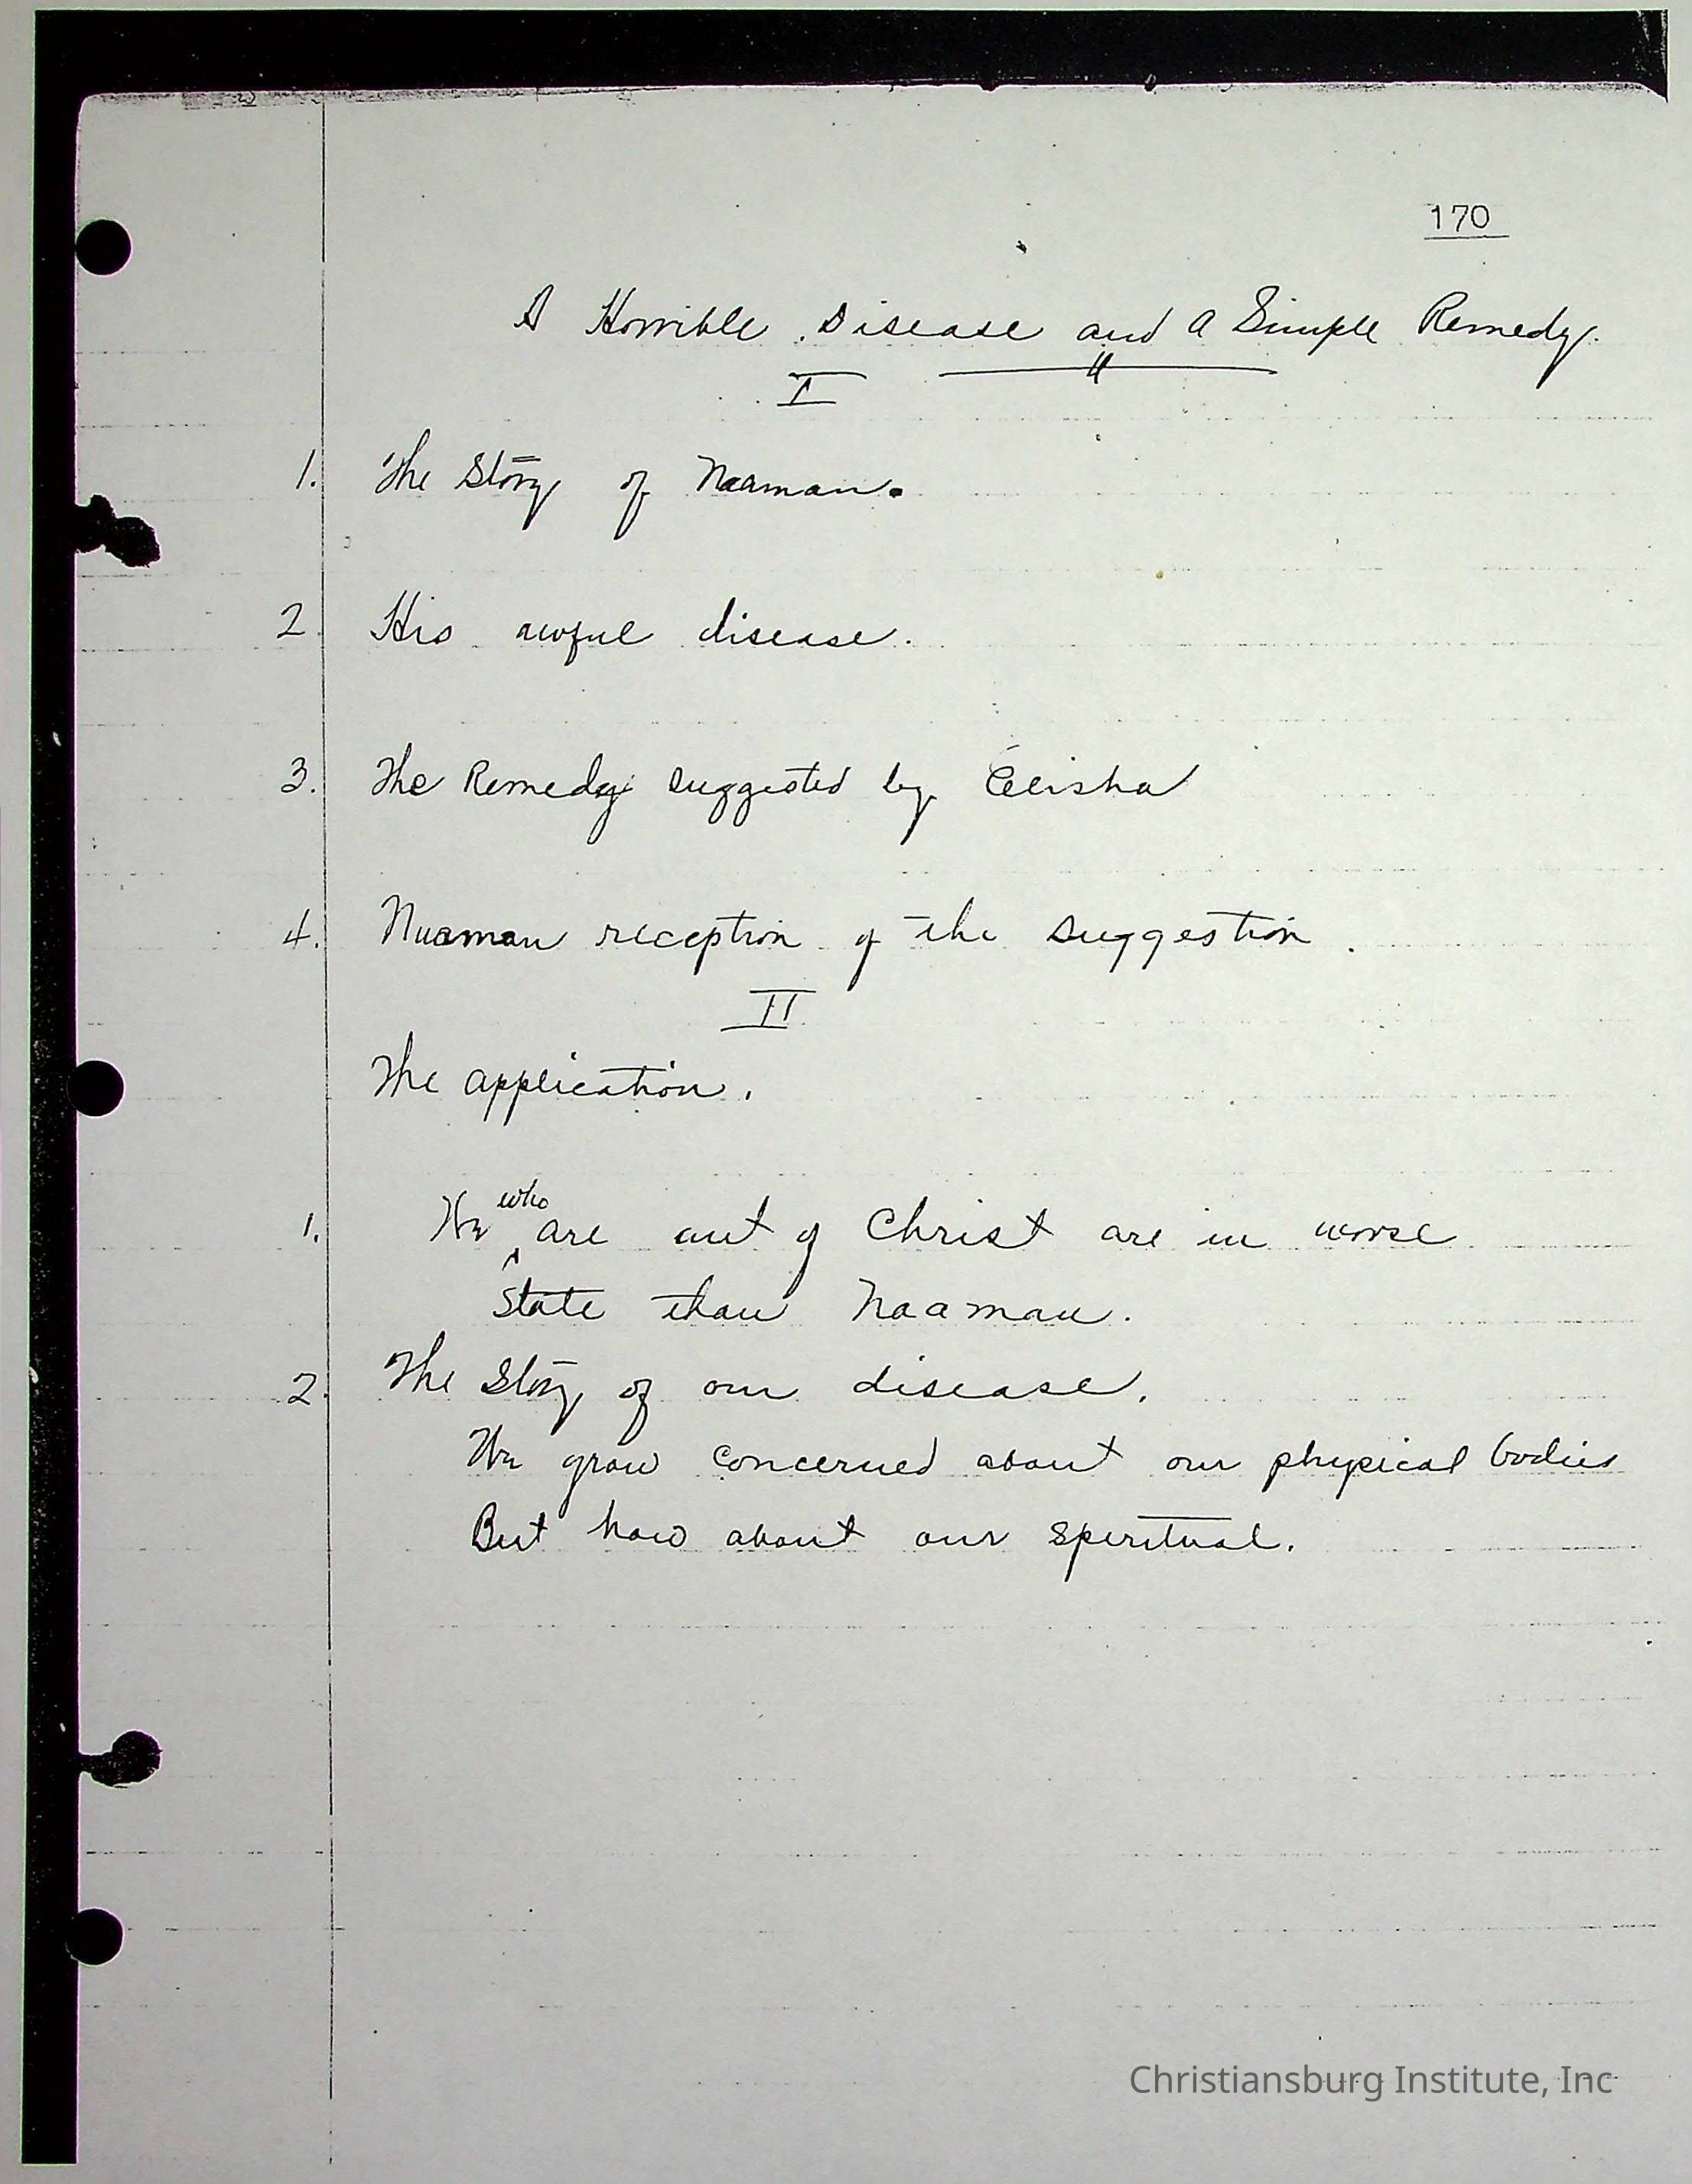 170
A Horrible Disease and A Simple Remedy.
I
1. The Story of Naaman.
2. His awful disease.
3. The Remedy suggested by Elisha
4. Naaman reception of the suggestion.
II
The application.
1. We who are out of Christ are in worse
state than Naaman.
2. The Story of our disease.
We grow concerned about our physical bodies
But how about our speritual.
Christiansburg Institute, Inc